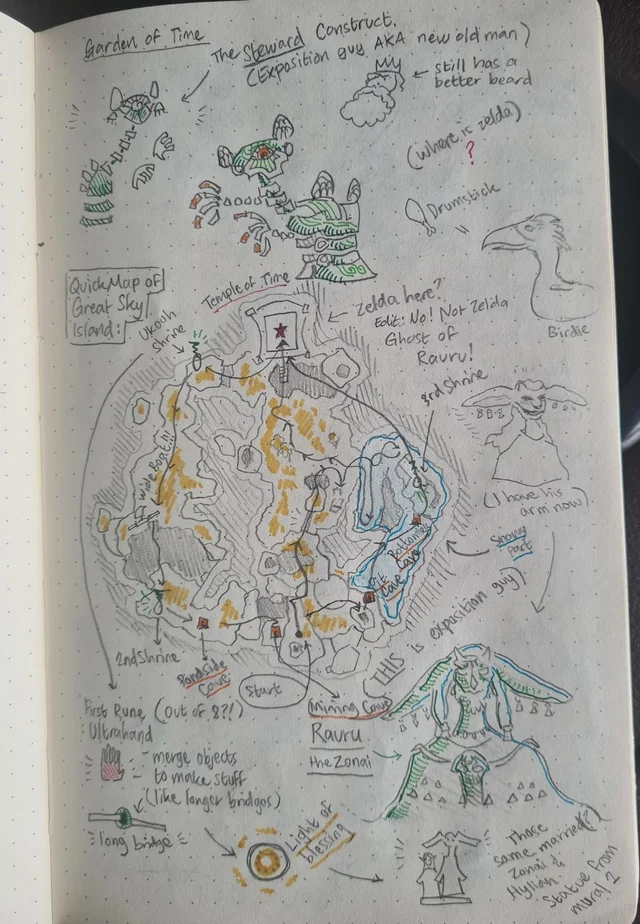 Garden of Time
The Steward Construct.
(Exposition guy AKA new old man)
still has a
better beard
(where is zelda)
?
Drumstick
Birdie
Quick Map of
Great Sky
Island:
Temple of Time
Ukouh
Shrine
Zelda here?
Edit: No! Not Zelda
Ghost of
Rauru!
3rd Shrine
(I have his
arm now)
Snowy
part
Bottomless
Cave
Pit
Cave
(THIS is exposition guy)
2nd Shrine
Pondside
Cave
Start
Mining Cave
First Rune (out of 8?!)
Ultrahand
- merge objects
to make stuff
(like longer bridges)
long bridge
Rauru
the Zonai
Light of
blessing
Those
same married?
Zonai &
Hylian.
Statue from
mural 2